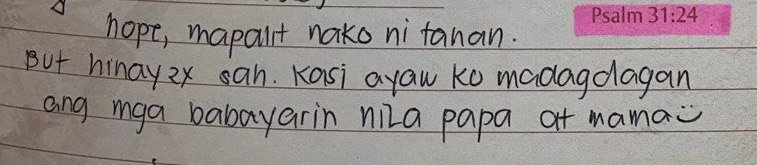 Psalm 31:24
hope, mapalit nako ni tanan.
But hinay2x sah. Kasi ayaw ko madagdagan
ang mga babayarin nila papa at mama